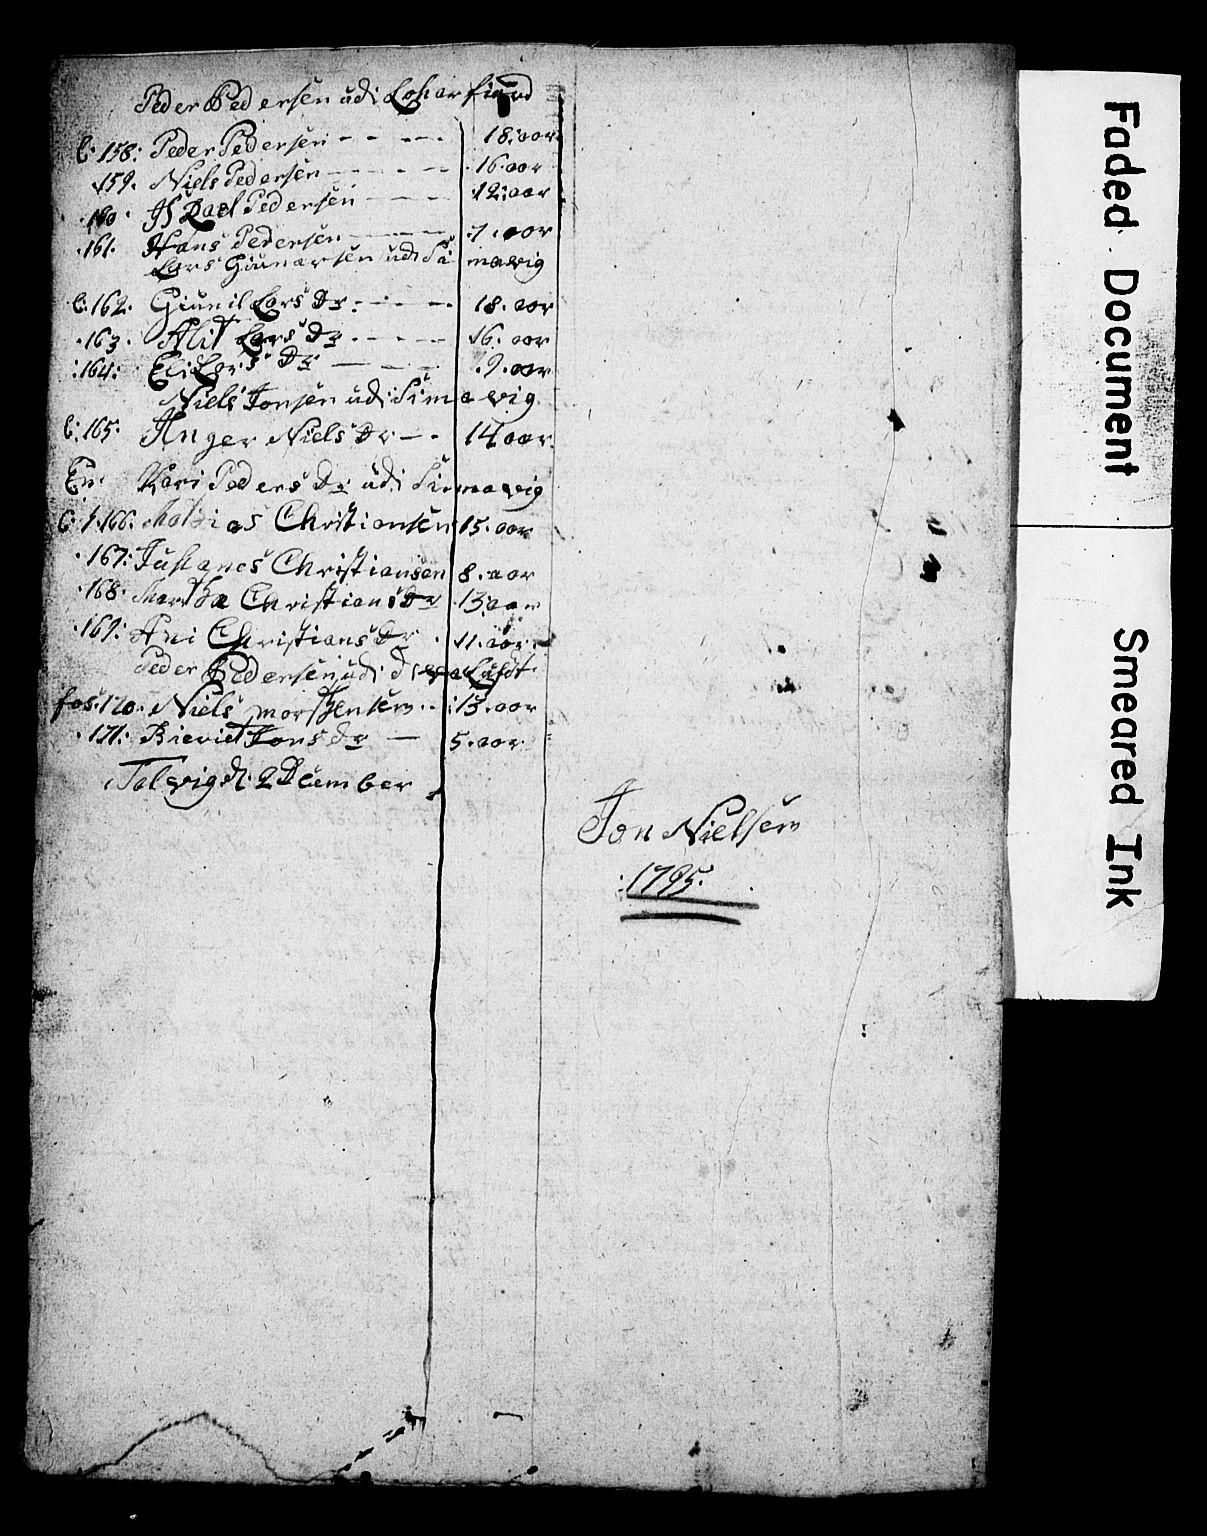 Peder Pedersen udi Loharfiord
b: 158: Peder Pedersen - - - - 18: aar
159. Niels Pedersen - - - - - 16. aar
160. Is Rael Pedersen - - - - 12: aar
.161. Hans Pedersen - - - - - 7. aar
Lars Giunarsen udi Simavig
b: 162. Giunil Lars Dr. - - - - 18. aar
.163. Alit Lars Dr - - - - - 16. aar
:164: Eli Lars Dr - - - - 9. aar
Niels Jonsen udi Simavig
b: 165. Anger Niels Dr - - 14 aar.
En. Kari Peders Dr udi Simavig
b: 166. Matias Christiansen 15. aar
.167: Justanes Christiansen 8. aar
.168. Martha Christians Dr 13. aar
.169: Ani Christians Dr . 11. aar.
Peder Pedersen udi
fos: 170. Niels morthensen . . :13. aar
.171: Bieriet Jons dr - 5. aar
Talvig d. 2 December
Jon Nielsen
:1795.
Faded Document
Smeared Ink